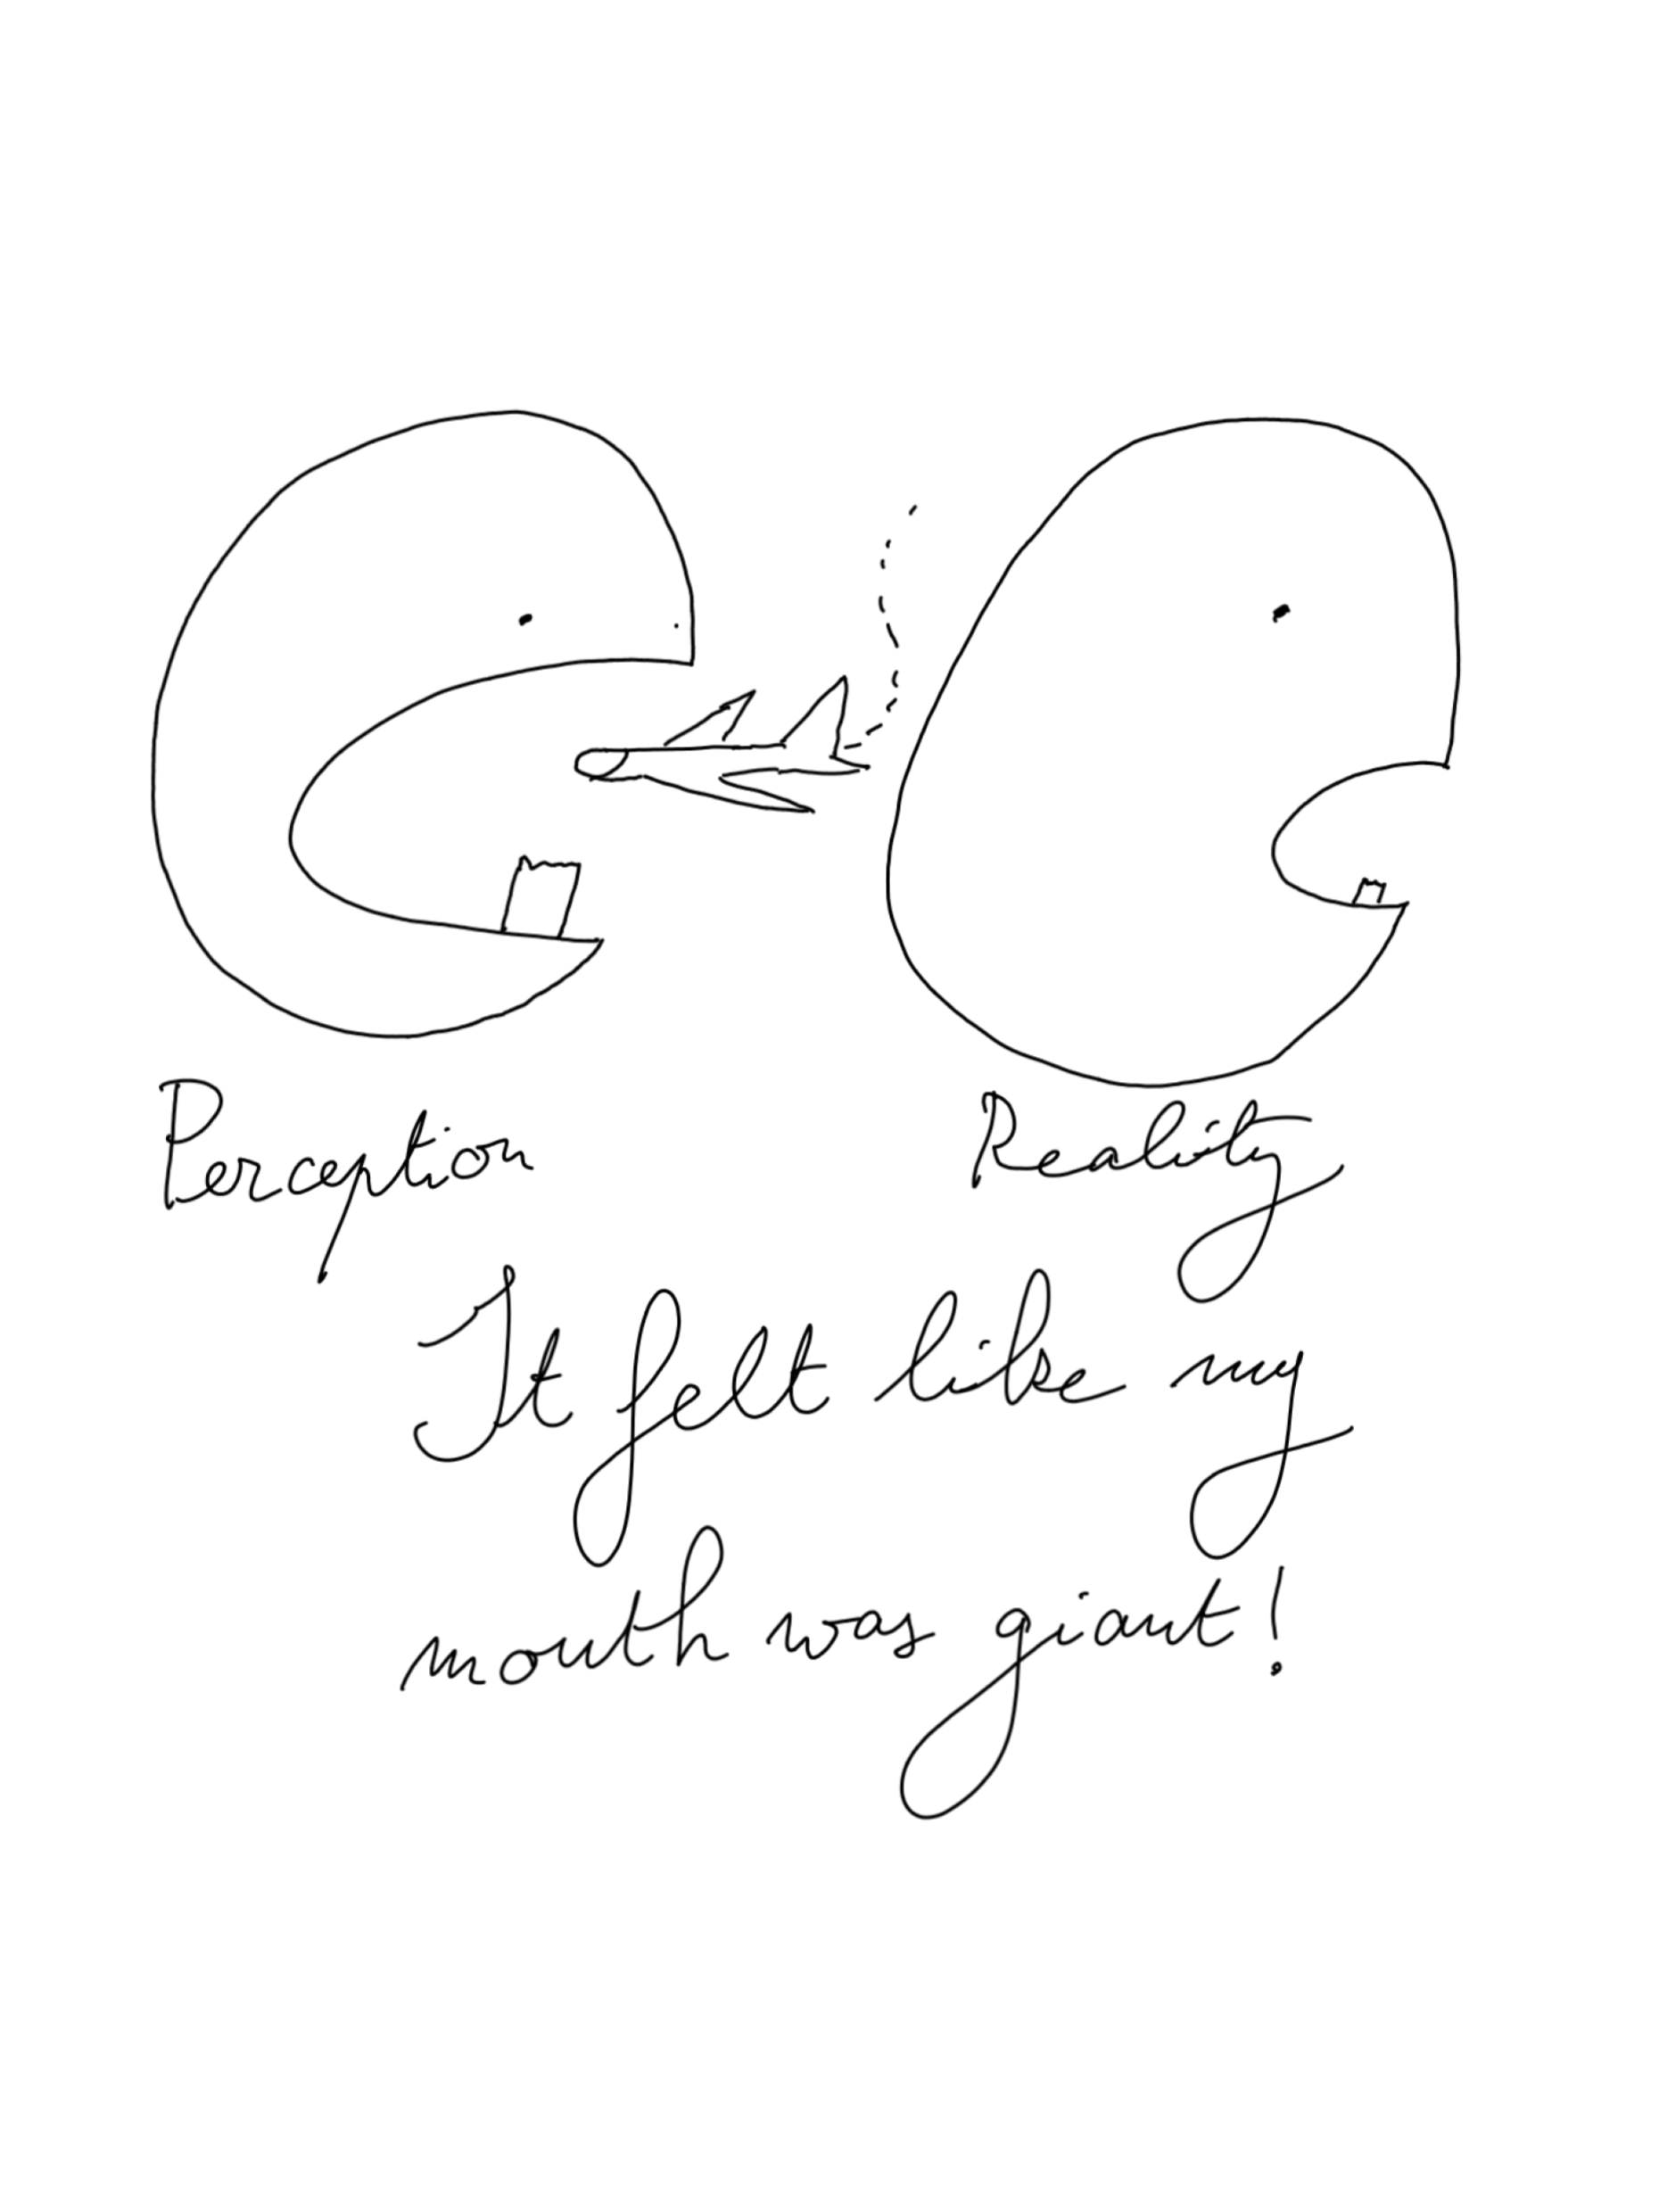 Perception
Reality
It felt like my
mouth was giant!